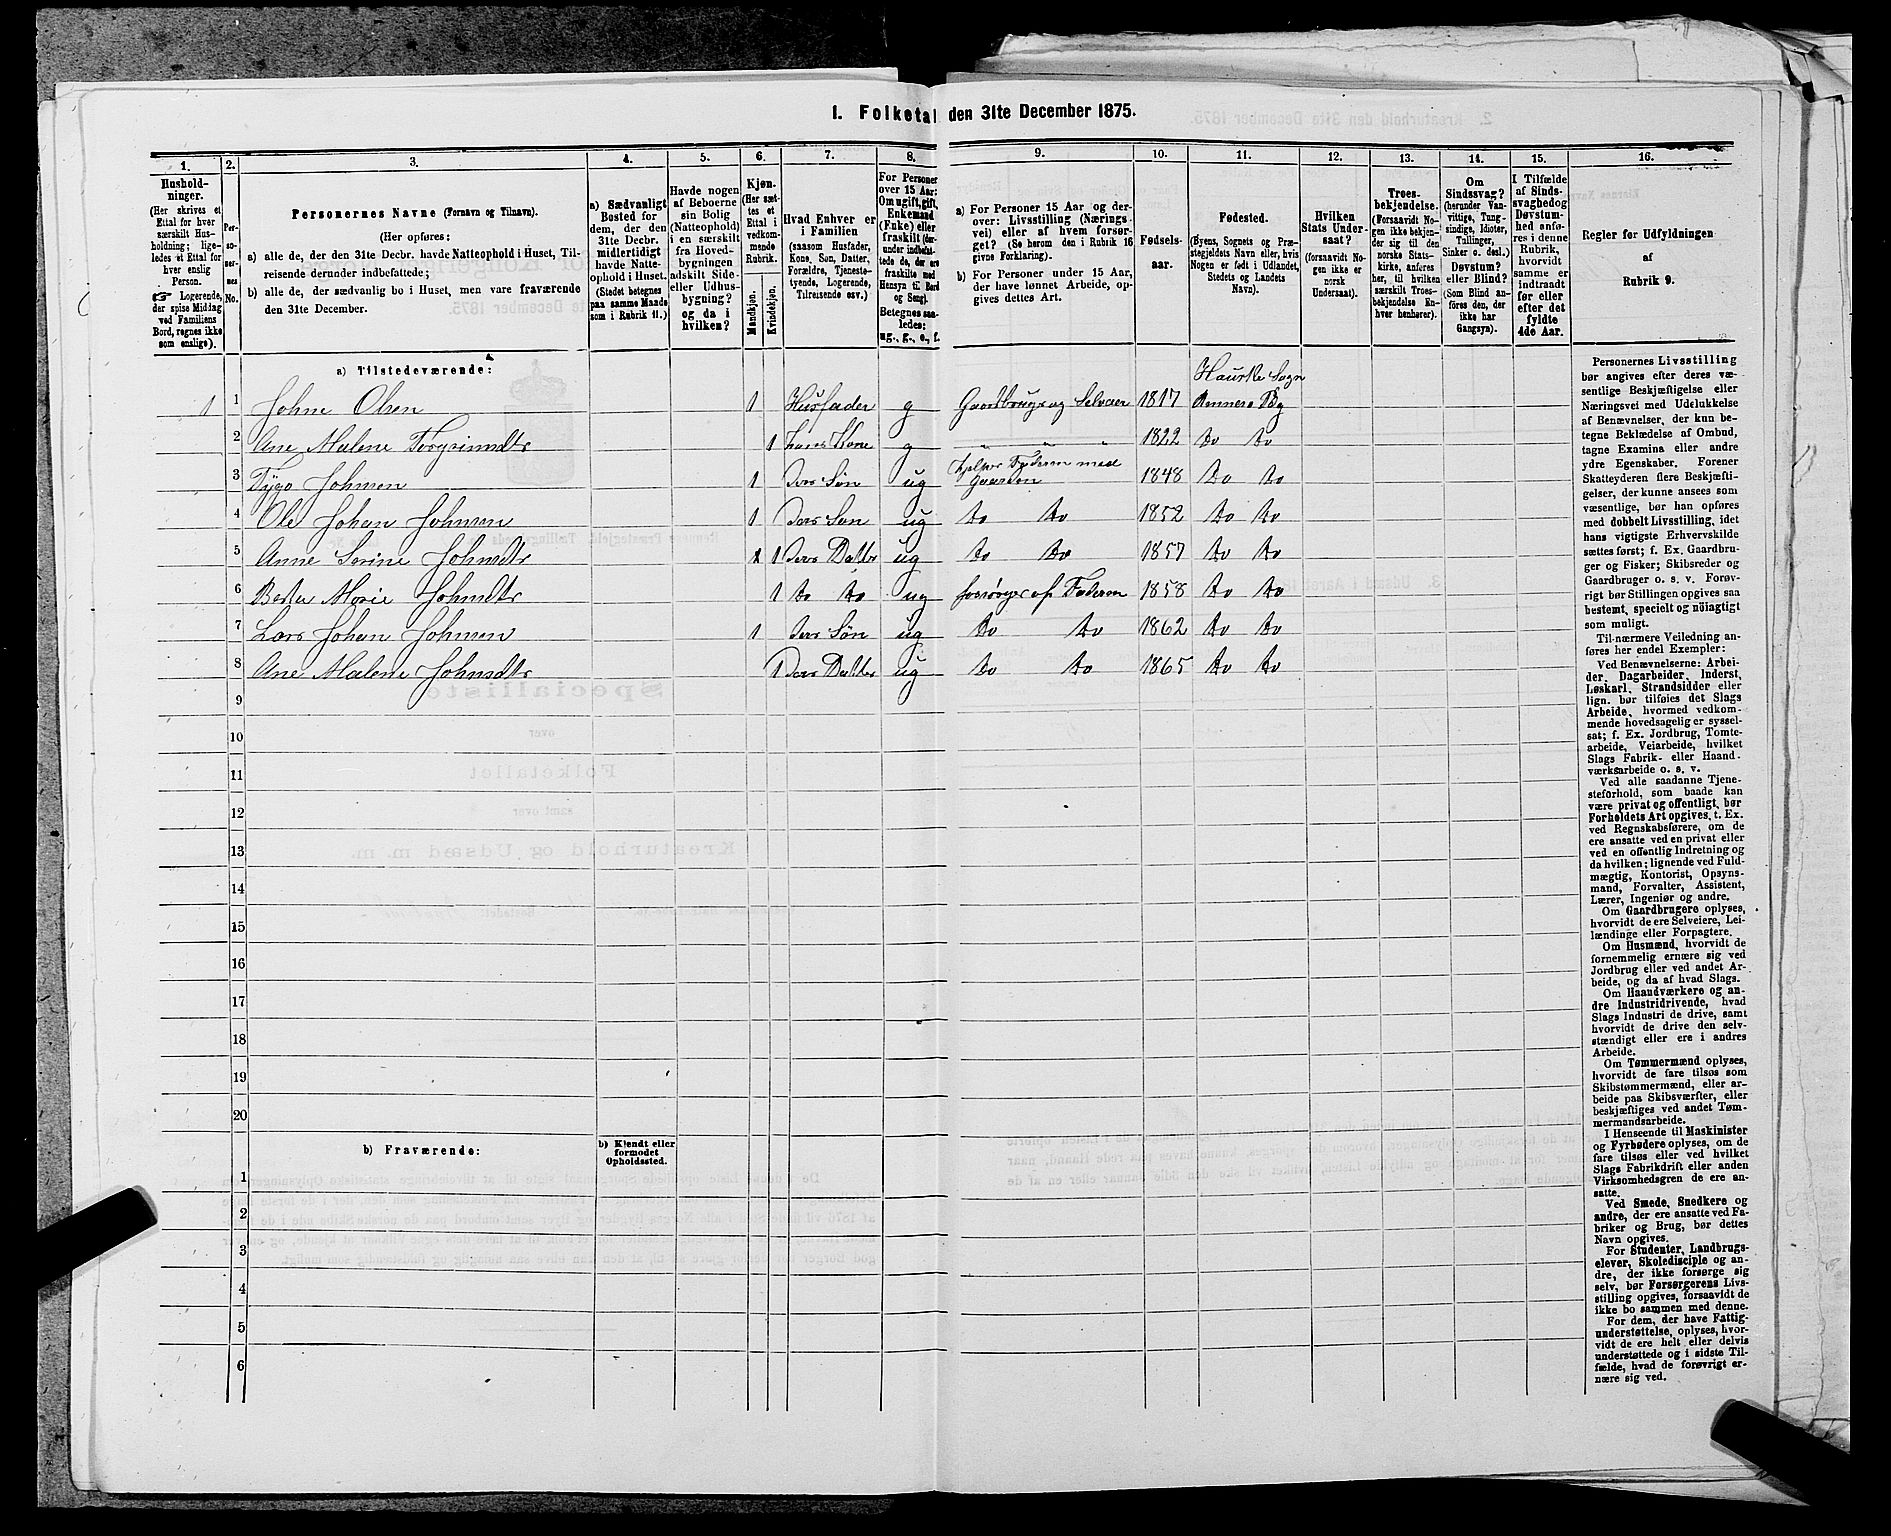 1. Folketal den 31te December 1875.
1. 2. 3. 4. 5. 6. 7. 8. 9. 10. 11. 12. 13. 14. 15. 16.
Hushold-
ninger.
(Her skrives et
Ettal for hver
særskilt Hus-
holdning; lige-
ledes et Ettal for
hver enslig
Person.
☞ Logerende,
der spise Middag
ved Familiens
Bord, regnes ikke
som enslige).
Per-
so-
ner-
nes
No.
Personernes Navne (Fornavn og Tilnavn).
(Her opføres:
a) alle de, der den 31te Decbr. havde Natteophold i Huset, Til-
reisende derunder indbefattede;
b) alle de, der sædvanlig bo i Huset, men vare fraværende
den 31te December.
a) Sædvanligt
Bosted for
dem, der den
31te Decbr.
midlertidigt
havde Natte-
ophold i Huset.
(Stedet betegnes
paa samme Maade
som i Rubrik 11.)
Havde nogen
af Beboerne
sin Bolig
(Natteophold)
i en særskilt
fra Hoved-
bygningen
adskilt Side-
eller Udhus-
bygning?
og da i
hvilken?
Kjøn.
(Her sæt-
tes et
Ettal i
vedkom-
mende
Rubrik.
Mandkjøn.
Kvindekjøn.
Hvad Enhver er
i Familien
(saasom Husfader,
Kone, Søn, Datter,
Forældre, Tjeneste-
tyende, Logerende,
Tilreisende osv.)
For Personer
over 15 Aar:
Om ugift, gift,
Enkemand
(Enke) eller
fraskilt (der-
under indbefat-
tede de, der ere
fraskilte med
Hensyn til Bord
og Seng).
Betegnes saa-
ledes:
ug., g., e., f.
a) For Personer 15 Aar og der-
over: Livsstilling (Nærings-
vei) eller af hvem forsør-
get? (Se herom den i Rubrik 16
givne Forklaring).
b) For Personer under 15 Aar,
der have lønnet Arbeide, op-
gives dettes Art.
Fødsels-
aar.
Fødested.
(Byens, Sognets og Præ-
stegjeldets Navn eller, hvis
Nogen er født i Udlandet,
Stedets og Landets
Navn).
Hvilken
Stats Under-
saat?
(forsaavidt No-
gen ikke er
norsk
Undersaat).
Troes-
bekjendelse.
(Forsaavidt No-
gen ikke bekjen-
der sig til den
norske Stats-
kirke, anføres
her, til hvilken
særskilt Troes-
bekjendelse En-
hver henhører).
Om
Sindssvag?
(herunder Van-
vittige, Tung-
sindige, Idioter,
Tullinger,
Sinker o. desl.)
Døvstum?
eller Blind?
(Som Blind an-
føres den, der
ikke har
Gangsyn).
I Tilfælde
af Sinds-
svaghed og
Døvstum-
hed anfø-
res i denne
Rubrik,
hvorvidt
samme er
indtraadt
før eller
efter det
fyldte
4de Aar.
Regler før Udfyldningen
af
Rubrik 9.
a) Tilstedeværende:
Hauske Sogn
1 1 Johne Olsen 1 Husfader g Gaardbruger og Selveier 1817
2 Ane Malene Torgrimsdtr 1 hans Kone g " " " 1822 Do Do
hjelper Faderen med
3 Tygo Johnsen 1 Deres Søn ug Gaarden 1848 Do Do
4 Ole Johan Johnsen 1 Deres Søn ug Do Do 1852 Do Do
5 Anne Serine Johnsdtr 1 Deres Datter ug Do Do 1857 Do Do
6 Marie Johnsdtr 1 Do Do ug forsørges af Faderen 1858 Do Do
7 Lars Johan Johnsen 1 Deres Søn ug Do Do 1862 Do Do
8 Ane Malene Johnsdtr 1 Deres Datter ug Do Do 1865 Do Do
9
10
11
12
13
14
15
16
17
18
19
20
b) Fraværende:
b) Kjendt eller
formodet
Opholdssted.
1
2
3
4
5
6
Personernes Livsstilling
bør angives efter deres væ-
sentlige Beskjæftigelse eller
Næringsvei med Udelukkelse
af Benævnelser, der kun be-
tegne Beklædelse af Ombud,
tagne Examina eller andre
ydre Egenskaber. Forener
Skatteyderen flere Beskjæfti-
gelser, der kunne ansees som
væsentlige, bør han opføres
med dobbelt Livsstilling, idet
hans vigtigste Erhvervskilde
sættes først; f. Ex. Gaardbru-
ger og Fisker; Skibsreder og
Gaardbruger o. s. v. Forøv-
rigt bør Stillingen opgives saa
bestemt, specielt og nöiagtigt
som muligt.
Til nærmere Veiledning an-
føres her endel Exempler:
Ved Benævnelserne: Arbei-
der, Dagarbeider, Inderst,
Løskarl, Strandsidder eller
lign. bør tilføies det Slags
Arbeide, hvormed vedkom-
mende hovedsagelig er syssel-
sat; f. Ex. Jordbrug, Tomte-
arbeide, Veiarbeide, hvilket
Slags Fabrik- eller Haand-
værksarbeide o. s. v.
Ved alle saadanne Tjene-
steforhold, som baade kan
være privat og offentligt, bør
Forholdets Art opgives, t. Ex.
ved Regnskabsførere, om de
ere ansatte ved en privat eller
ved en offentlig Indretning og
da hvilken; lignende ved Fuld-
mægtig, Kontorist, Opsyns-
mand, Forvalter, Assistent,
Lærer, Ingeniør og andre.
Om Gaardbrugere oplyses,
hvorvidt de ere Selveiere, Lei-
lændinge eller Forpagtere.
Om Husmænd, hvorvidt de
fornemmelig ernære sig ved
Jordbrug eller ved andet Ar-
beide, og da af hvad Slags.
Om Haandværkere og an-
dre Industridrivende, hvad
Slags Industri de drive, samt
hvorvidt de drive den selv-
stændigt eller ere i andres
Arbeide.
Om Tømmermænd oplyses,
hvorvidt de fare tilsøs som
Skibstømmermænd, eller ar-
beide paa Skibsværfter, eller
beskjæftiges ved andet Tøm-
mermandsarbeide.
I Henseende til Maskinister
og Fyrbødere oplyses, om de
fare tilsøs eller ved hvilket
Slags Fabrikdrift eller anden
Virksomhedsgren de ere an-
satte.
Ved Smede, Snedkere og
andre, der ere ansatte ved Fa-
briker og Brug, bør dettes
Navn opgives.
For Studenter, Landbrugs-
elever, Skoledisciple og an-
dre, der ikke forsørge sig
selv, bør Forsørgerens Livs-
stilling opgives, forsaavidt de
ikke bo sammen med denne.
For dem, der have Fattig-
understøttelse, oplyses, hvor-
vidt de ere helt eller delvis
understøttede og i sidste Til-
fælde, hvad de forøvrigt er-
nære sig ved.